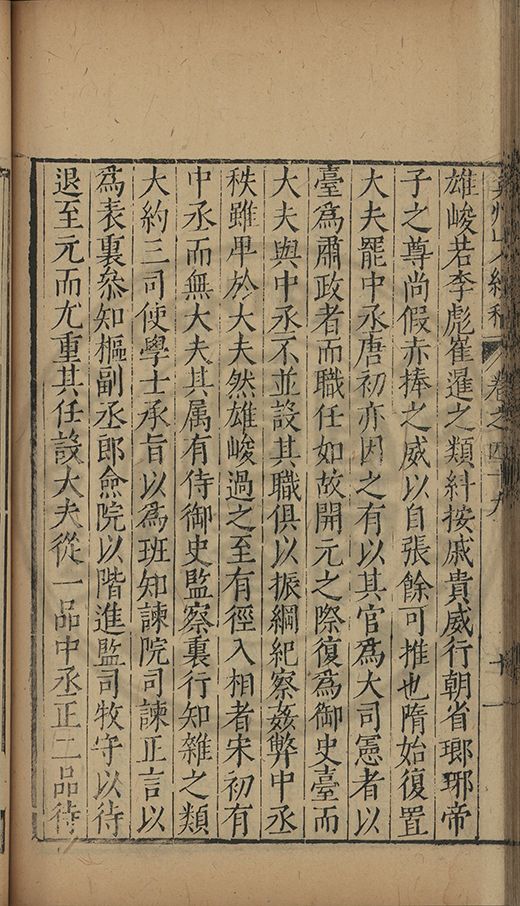 弇州山人續稿 卷之四十九 十一
雄峻若李彪崔暹之類糾按戚貴威行朝省瑯琊帝
子之尊尚假赤捧之威以自張餘可推也隋始復置
大夫罷中丞唐初亦因之有以其官為大司憲者以
臺為肅政者而職任如故開元之際復為御史臺而
大夫與中丞不並設其職俱以振綱紀察姦弊中丞
秩雖卑於大夫然雄峻過之至有徑入相者宋初有
中丞而無大夫其属有侍御史監察裏行知雜之類
大約三司使學士承旨以為班知諫院司諫正言以
為表裏叅知樞副丞郎僉院以階進監司牧守以待
退至元而尤重其任設大夫從一品中丞正二品待